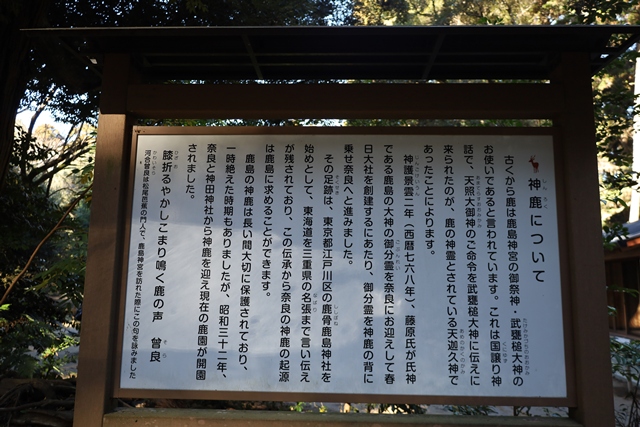 神鹿について
古くから鹿は鹿島神宮の御祭神・武甕槌大神の
お使いであると言われています。これは国譲り神
話で、天照大御神のご命令を武甕槌大神に伝えに
来られたのが、鹿の神霊とされている天迦久神で
あったことによります。
神護景雲二年（西暦七六八年）、藤原氏が氏神
である鹿島の大神の御分霊を奈良にお迎えして春
日大社を創建するにあたり、御分霊を神鹿の背に
乗せ奈良へと進みました。
その足跡は、東京都江戸川区の鹿骨鹿島神社を
始めとして、東海道を三重県の名張まで言い伝え
が残されており、この伝承から奈良の神鹿の起源
は鹿島に求めることができます。
鹿島の神鹿は長い間大切に保護されており、
一時絶えた時期もありましたが、昭和三十二年、
奈良と神田神社から神鹿を迎え現在の鹿園が開園
されました。
膝折るやかしこまり鳴く鹿の声 曾良
河合曾良は松尾芭蕉の門人で、鹿島神宮を訪れた際にこの句を詠みました